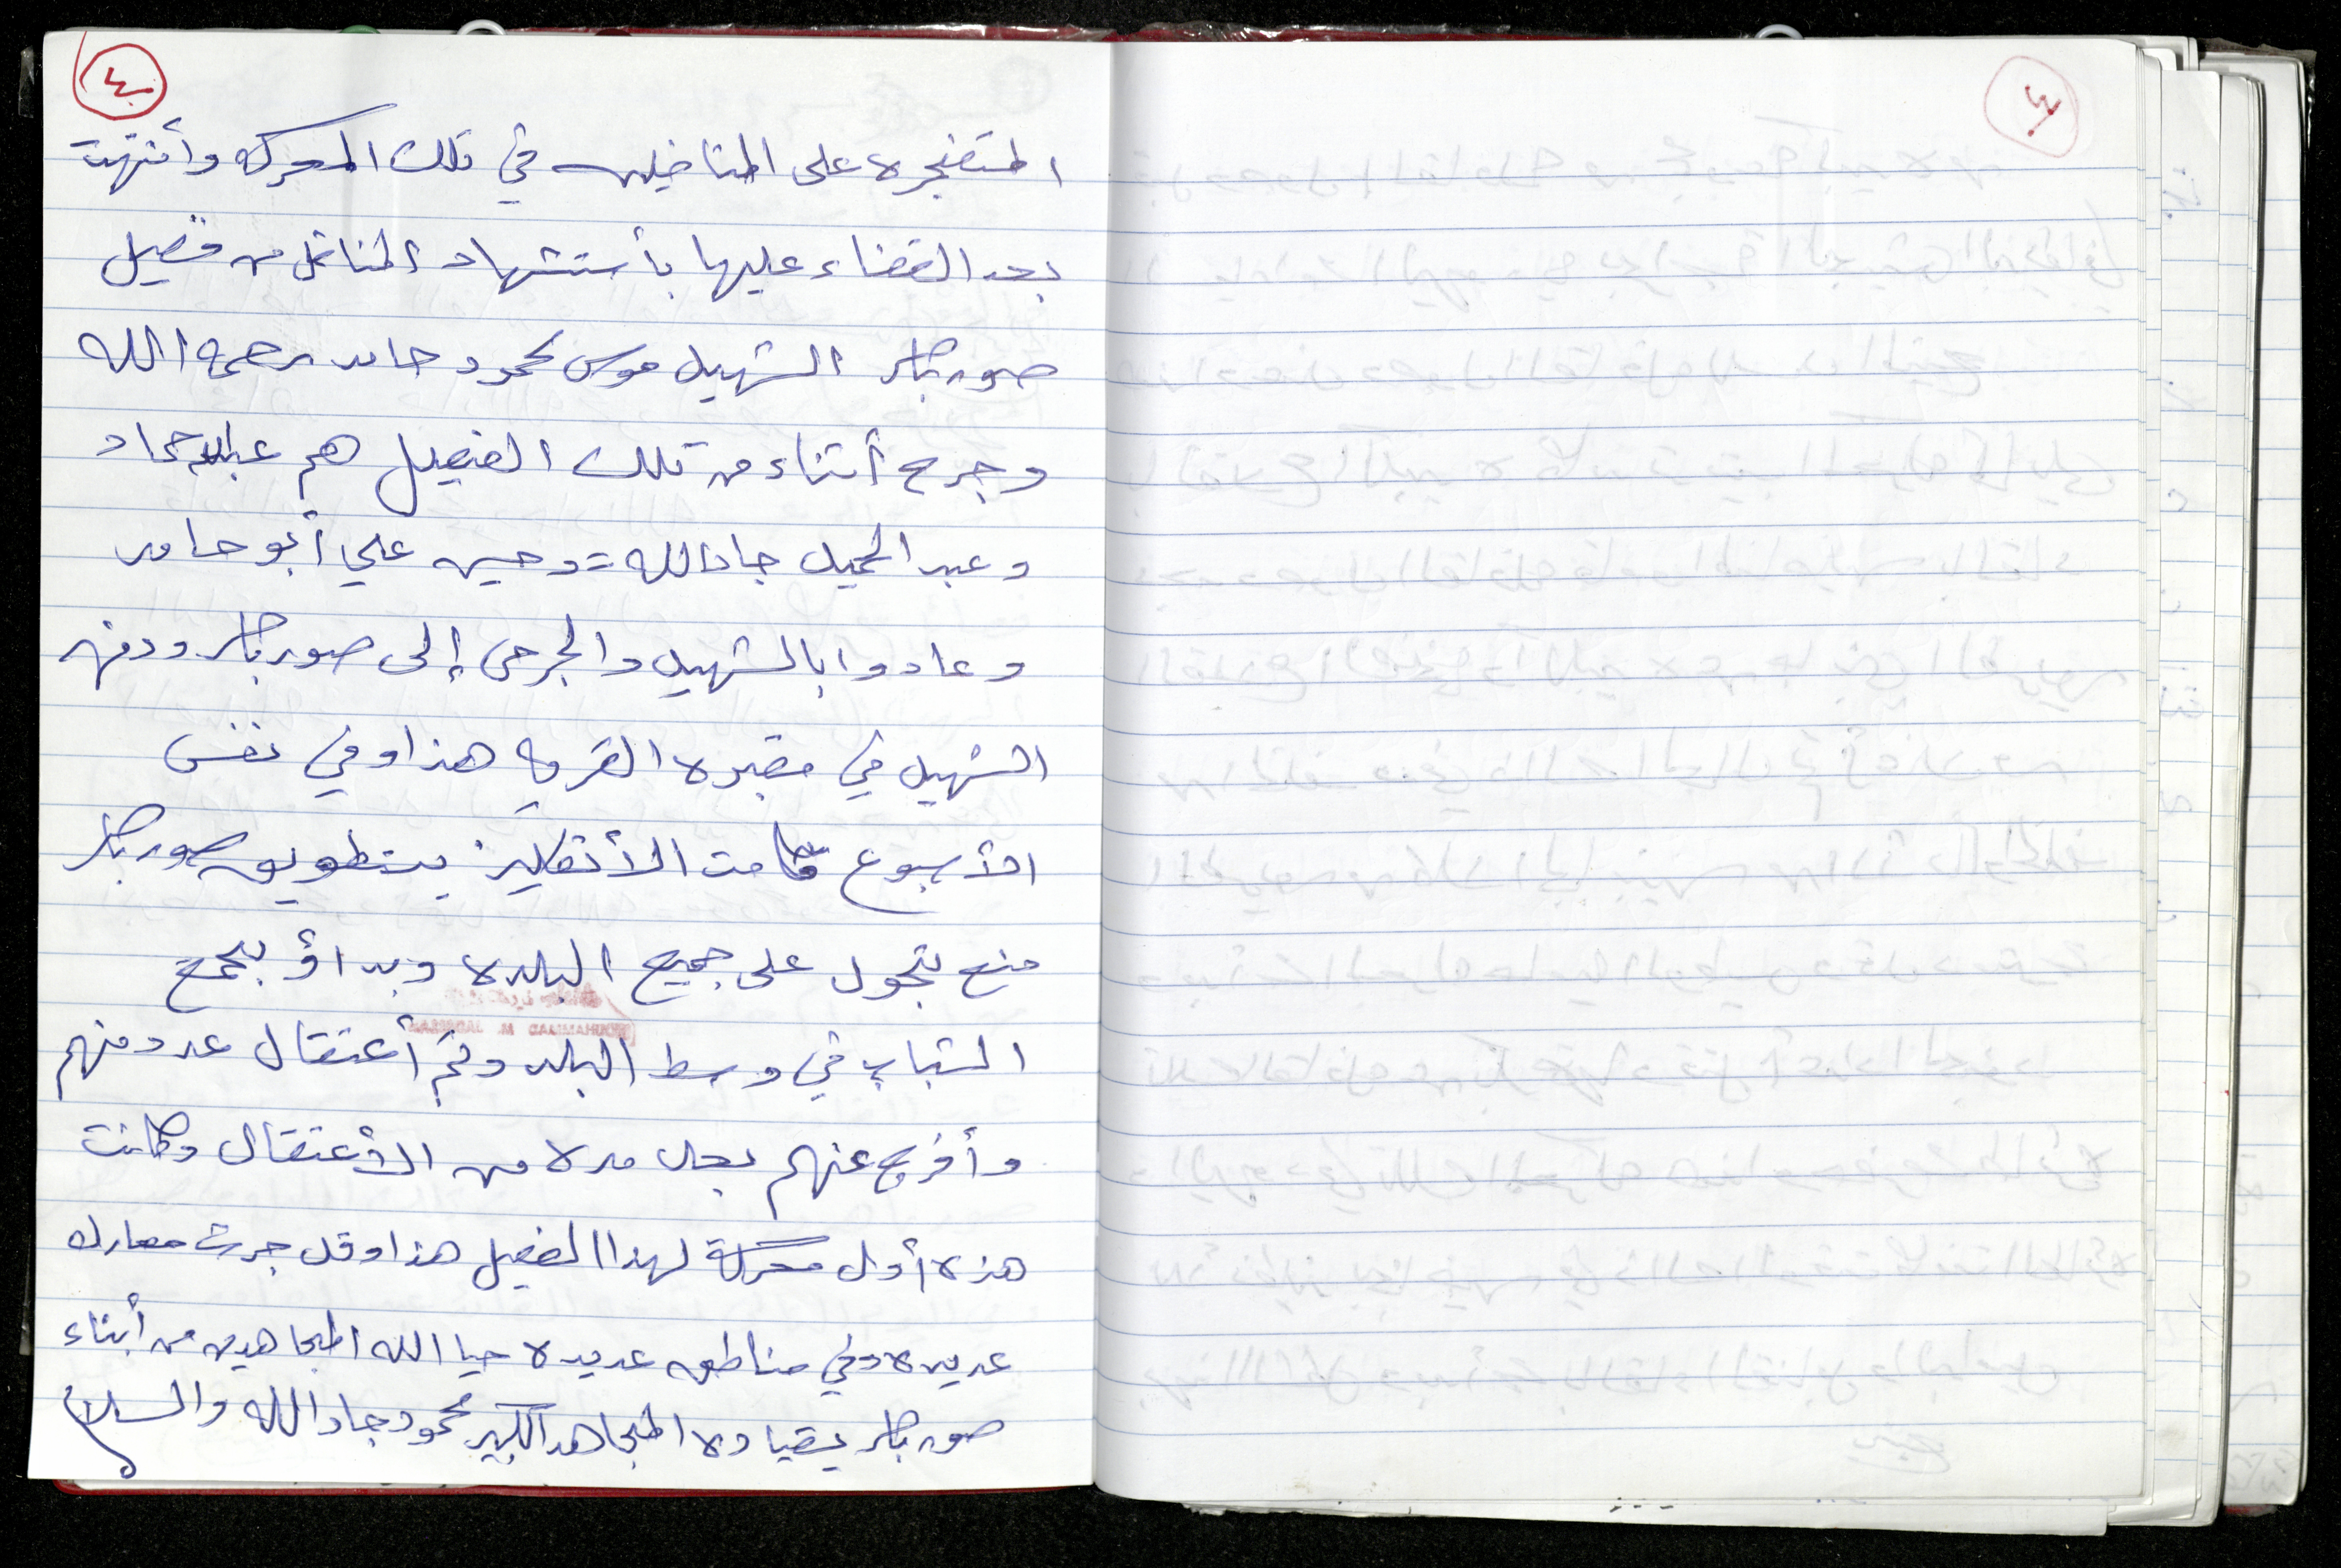 ٤
المتفجره على المناضلين في تلك المعركه وأنتهت
بعد القضاء عليها بأستشهاد المناضل من فصيل
صور باهر الشهيد موسى محمود حامد رحمه الله
وجرح أثناء من تلك الفصيل هم عبدالله حماد
وعبد الحميد جادالله - وحسين علي أبو حامد
وعادوا بالشهيد والجرحى إلى صور باهر ودفنه
الشهيد في مقبره القريه هذا وفي نفس
الأسبوع قامت الأنقليز بتطويق صور باهر
منع تجول على جميع البلده وبداؤ بجمع
الشباب في وسط البلد وتم أعتقال عدد منهم
وأفرج عنهم بعد مده من الأعتقال وكانت
هذه أول معركة لهذا الفصيل هذا وقد جرت معارك
عديده وفي مناطق عديده حيا الله المجاهدين من أبناء
صور باهر بقياده المجاهد الكبير محمود جادالله والسلام
٣